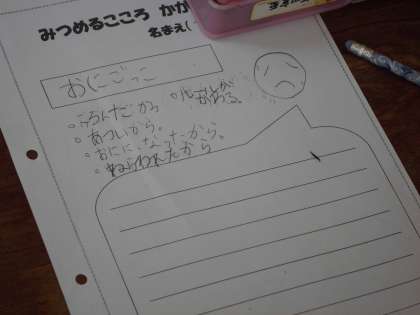 みつめるこころ かが
名まえ(
おにごっこ
。ころんだから
。ルールが
かわる。
。あついから。
。おにになったから。
。ねらわれたから。